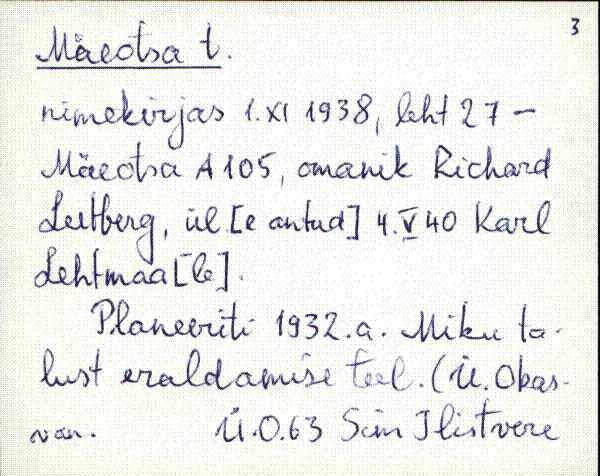 3
Mäeotsa t.
nimekirjas 1.XI 1938, leht 27 -
Mäeotsa A 105, omanik Richard
Lutberg, ül.[e antud] 4.V 40 Karl
Lehtmaa[le].
Planeeriti 1932.a. Miku ta-
lust eraldamise teel. (Ü. Okas-
van. Ü.O.63 Siim Ilistvere